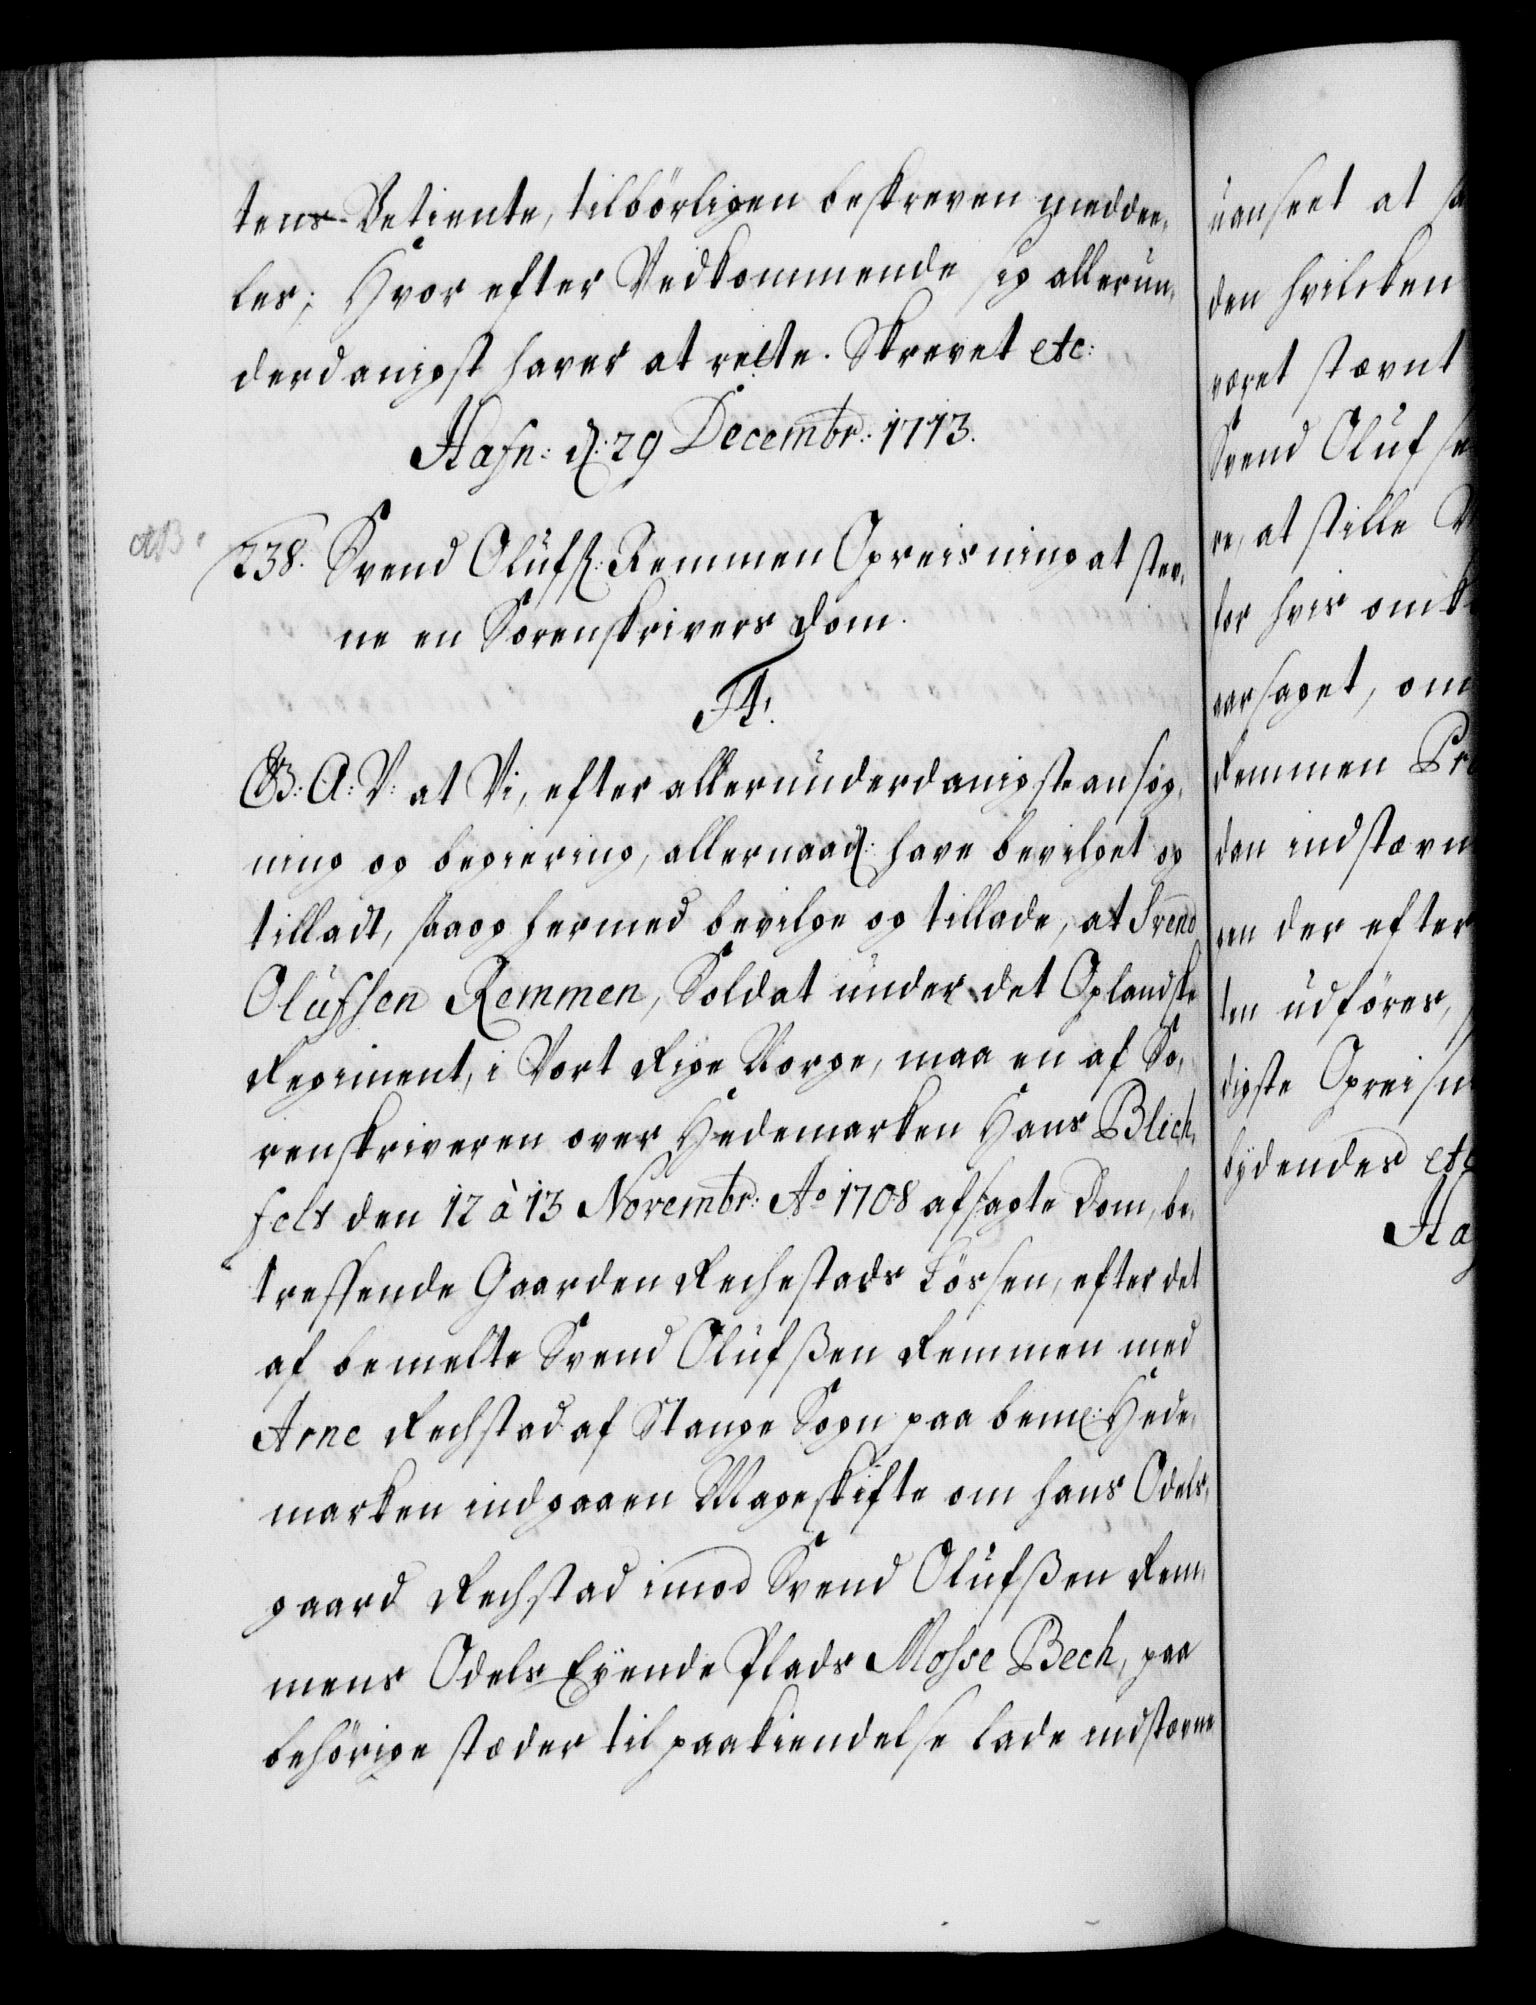 tens Betiente, tilbörligen beskreven meddee,
les; Hvor efter Vedkommende sig allerun,
derdanigst haver at rette. Skrevet etc:
Hafn: d: 29 Decembr: 1713.
238. Svend Olufs: Remmen Opreisning at stev,
ne en Sorenskrivers Dom.
F4.
G.B: A: V: at Vi, efter allerunderdanigste ansøg,
ning og begiering, allernaad: have bevilget og
tilladt, saa og hermed bevilge og tillade, at Svend
Olufsen Remmen, Soldat under det Oplandske
Regiment, i Vort Rige Norge, maa en af So,
renskriveren over Hedemarken Hans Blich,
felt den 12 à 13 Novembr: Ao 1708 afsagte Dom, be,
treffende Gaarden Rechestads Lössen, efter det
af bemelte Svend Olufßen Remmen med
Arne Rechstad af Stange Sogn paa bem: Hede,
marken indgaaen Mageskifte om hans Odels,
gaard Rechstad imod Svend Olufßen Rem,
mens Odels Eyende Plads Mosse Bech, paa
behörige stæder til paakiendelse lade indstævne
uanseet at
den hvilcken
været stævnt
Svend Olufse
re, at stille
for hvis omk
aarsaget, om
Remmen Pr
den indstævn
gen der efter
ten udföres,
digste Opreisn
bydendes etc
Ha